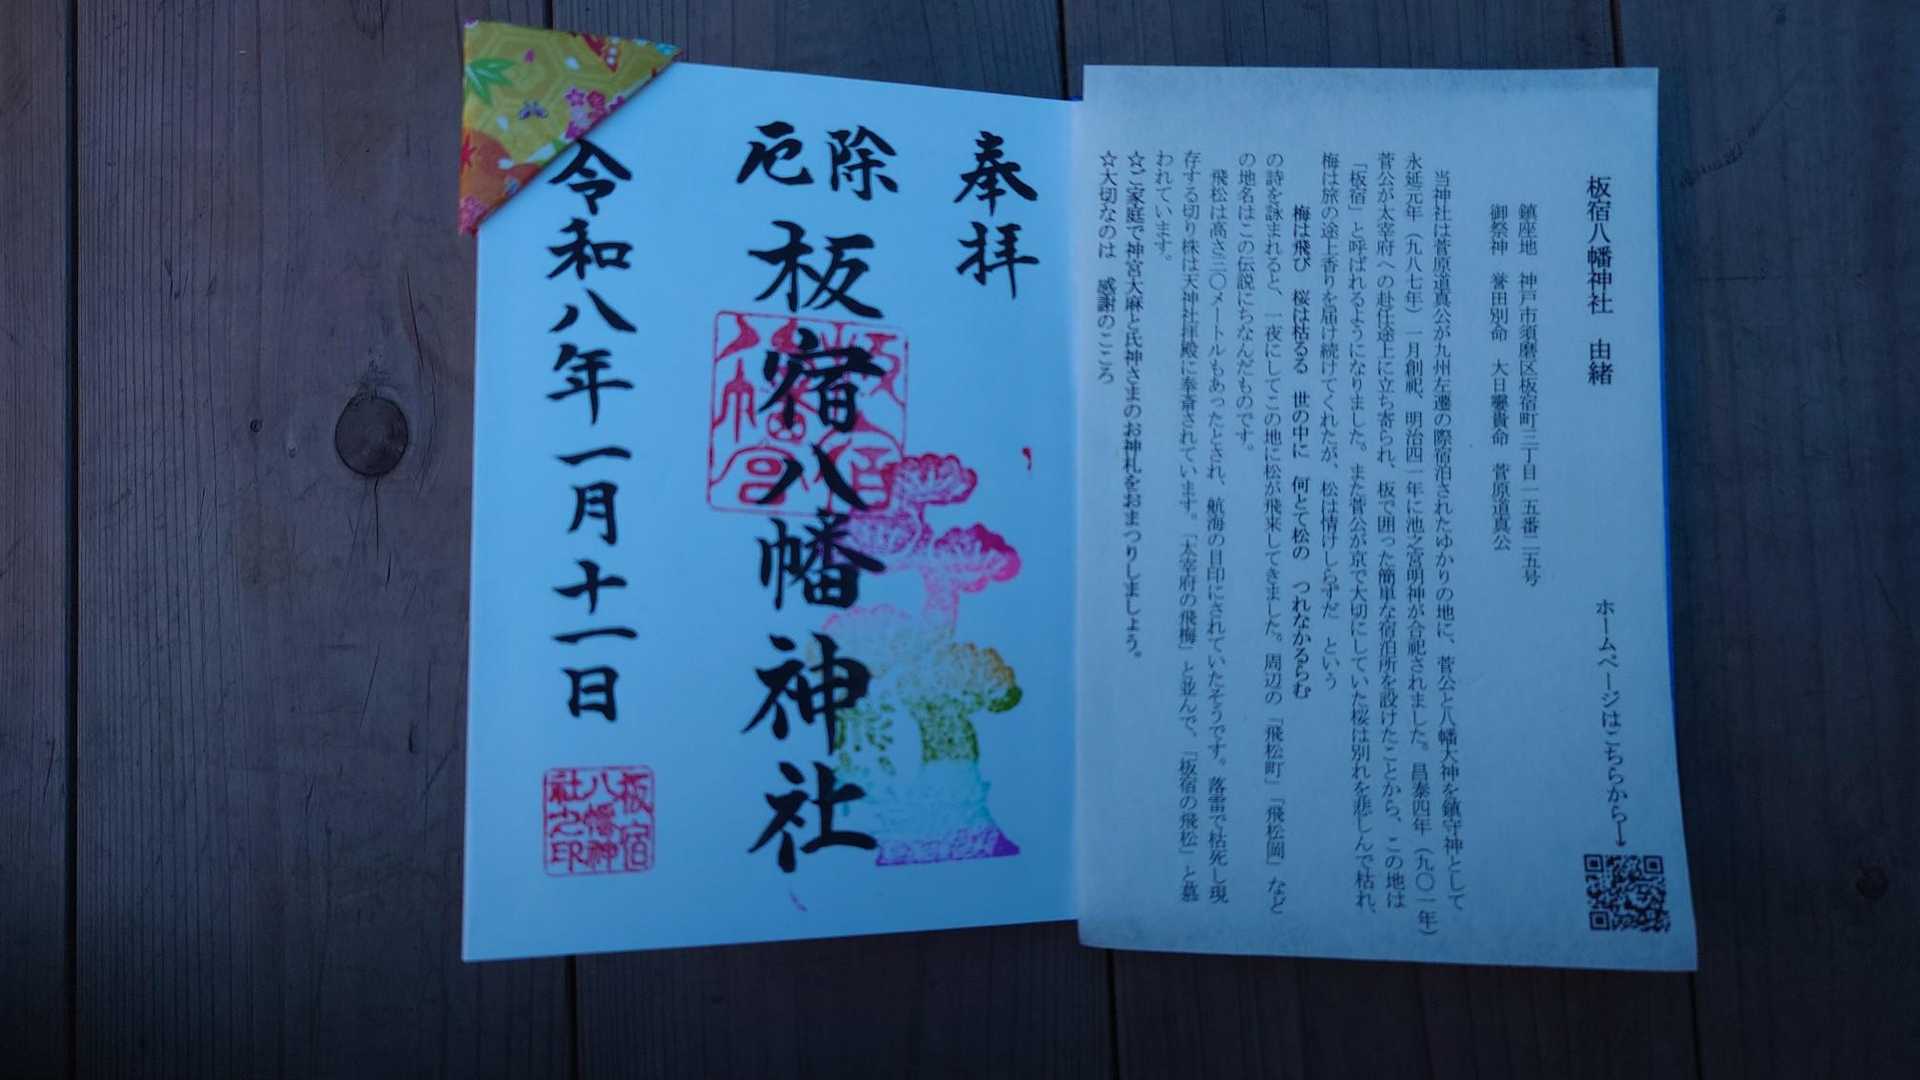 板宿八幡神社　由緒
ホームページはこちらから→
鎮座地　神戸市須磨区板宿町三丁目一五番二五号
御祭神　誉田別命　大日孁貴命　菅原道真公
当神社は菅原道真公が九州左遷の際宿泊されたゆかりの地に、菅公と八幡大神を鎮守神として
永延元年（九八七年）一月創祀、明治四一年に池之宮明神が合祀されました。昌泰四年（九〇一年）
菅公が太宰府への赴任途上に立ち寄られ、板で囲った簡単な宿泊所を設けたことから、この地は
「板宿」と呼ばれるようになりました。また菅公が京で大切にしていた桜は別れを悲しんで枯れ、
梅は旅の途上香りを届け続けてくれたが、松は情けしらずだ　という
梅は飛び　桜は枯るる　世の中に　何とて松の　つれなかるらむ
の詩を詠まれると、一夜にしてこの地に松が飛来してきました。周辺の「飛松町」「飛松岡」など
の地名はこの伝説にちなんだものです。
飛松は高さ三〇メートルもあったとされ、航海の目印にされていたそうです。落雷で枯死し現
存する切り株は天神社拝殿に奉斎されています。「太宰府の飛梅」と並んで、「板宿の飛松」と慕
われています。
☆ご家庭で神宮大麻と氏神さまのお神札をおまつりしましょう。
☆大切なのは　感謝のこころ
奉拝
厄除
板宿八幡神社
令和八年一月十一日
板宿
八幡神
社之印